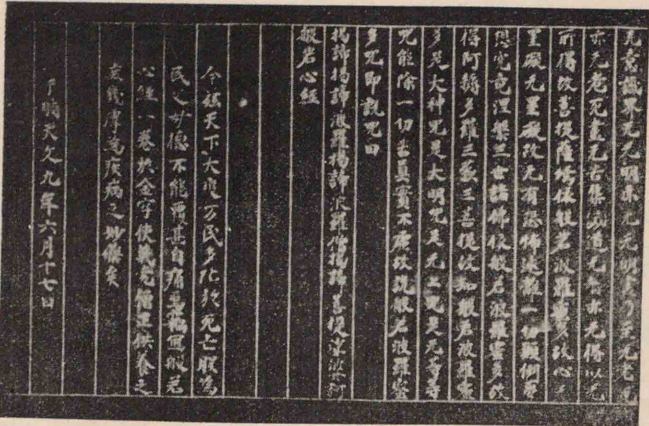 无意識界无无明亦无无明尽乃至无老死
亦无老死尽无苦集滅道无智亦无得以无
所得故菩提薩埵依般若波羅蜜多故心无
罣礙无罣礙故无有恐怖遠離一切顛倒夢
想究竟涅槃三世諸佛依般若波羅蜜多故
得阿耨多羅三藐三菩提故知般若波羅蜜
多是大神咒是大明咒是无上咒是无等等
咒能除一切苦真實不虛故說般若波羅蜜
多咒即說咒曰
揭諦揭諦波羅揭諦波羅僧揭諦菩提薩婆訶
般若心経
今茲天下大疫万民多阽於死亡朕為
民父母徳不能覆甚自痛焉竊寫般若
心経一巻於金字使義堯僧正供養之
庶幾虖為疾病之妙藥矣
于時天文九年六月十七日